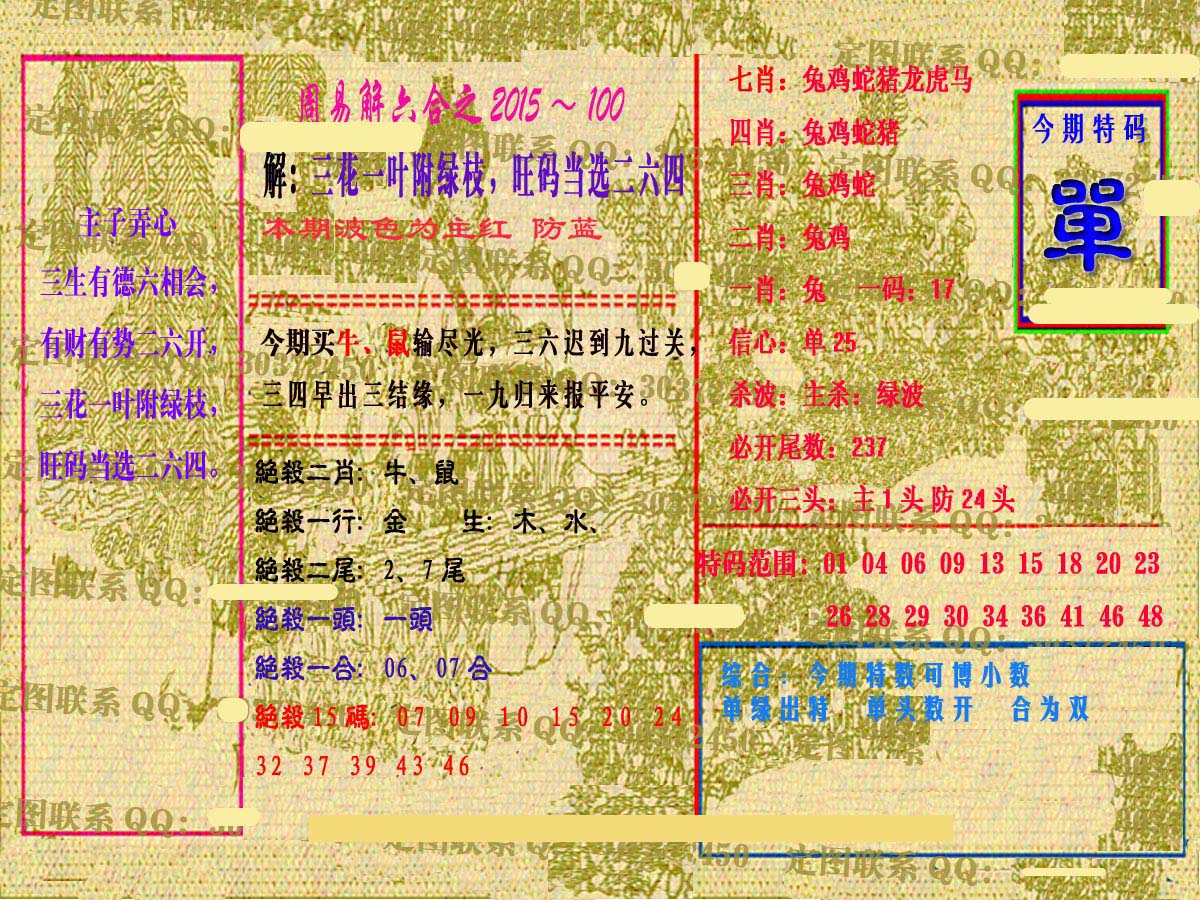 主子弄心
三生有德六相会，
有财有势二六开，
三花一叶附绿枝，
旺码当选二六四。
周易解六合之2015～100
解：三花一叶附绿枝，旺码当选二六四
本期波色为主红 防蓝
今期买牛、鼠输尽光，三六迟到九过关，
三四早出三结缘，一九归来报平安。
絕殺二肖：牛、鼠
絕殺一行：金 生：木、水、
絕殺二尾：2、7尾
絕殺一頭：一頭
絕殺一合：06、07合
絕殺15碼：07 09 10 15 20 24
32 37 39 43 46
七肖：兔鸡蛇猪龙虎马
四肖：兔鸡蛇猪
三肖：兔鸡蛇
二肖：兔鸡
一肖：兔 一码：17
信心：单25
杀波：主杀：绿波
必开尾数：237
必开三头：主1头防24头
今期特码
單
特码范围：01 04 06 09 13 15 18 20 23
26 28 29 30 34 36 41 46 48
综合：今期特数可博小数
单绿出特 单头数开 合为双
定图联系QQ：